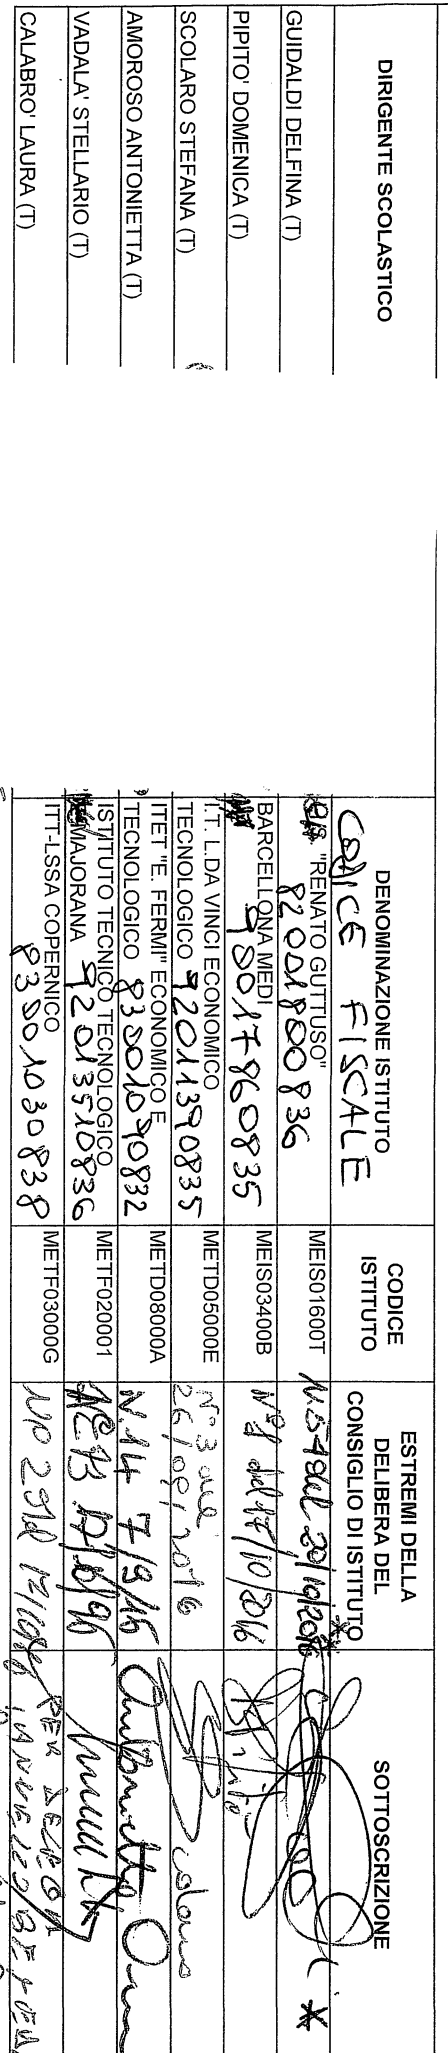 DIRIGENTE SCOLASTICO
DENOMINAZIONE ISTITUTO
CODICE FISCALE
CODICE
ISTITUTO
ESTREMI DELLA
DELIBERA DEL
CONSIGLIO DI ISTITUTO
SOTTOSCRIZIONE
GUIDALDI DELFINA (T)
"RENATO GUTTUSO"
82001800836
MEIS01600T
*
PIPITO' DOMENICA (T)
BARCELLONA MEDI
90017960835
MEIS03400B
del 17/10/2016
SCOLARO STEFANA (T)
I.T. L.DA VINCI ECONOMICO
TECNOLOGICO 92011390835
METD05000E
N° 3
26/09/2016
AMOROSO ANTONIETTA (T)
ITET "E. FERMI" ECONOMICO E
TECNOLOGICO 83001090832
METD08000A
N. 14 7/9/15
VADALA' STELLARIO (T)
ISTITUTO TECNICO TECNOLOGICO
MAJORANA 92013510836
METF020001
CALABRO' LAURA (T)
ITT-LSSA COPERNICO
83001030838
METF03000G